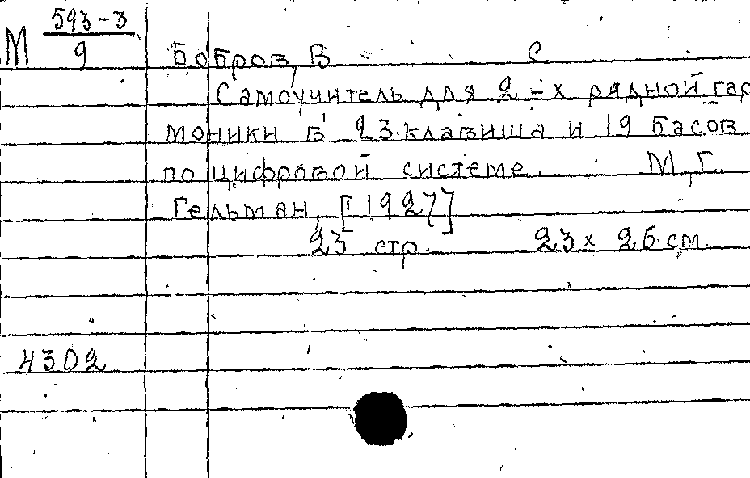 М 593-3
9
Бобров, В С
Самоучитель для 2-х рядной гар
моники в 23 клавиша и 19 басов
по цифровой системе. М, Г.
Гельман, [1927]
23 стр. 23 x 26 см.
4302